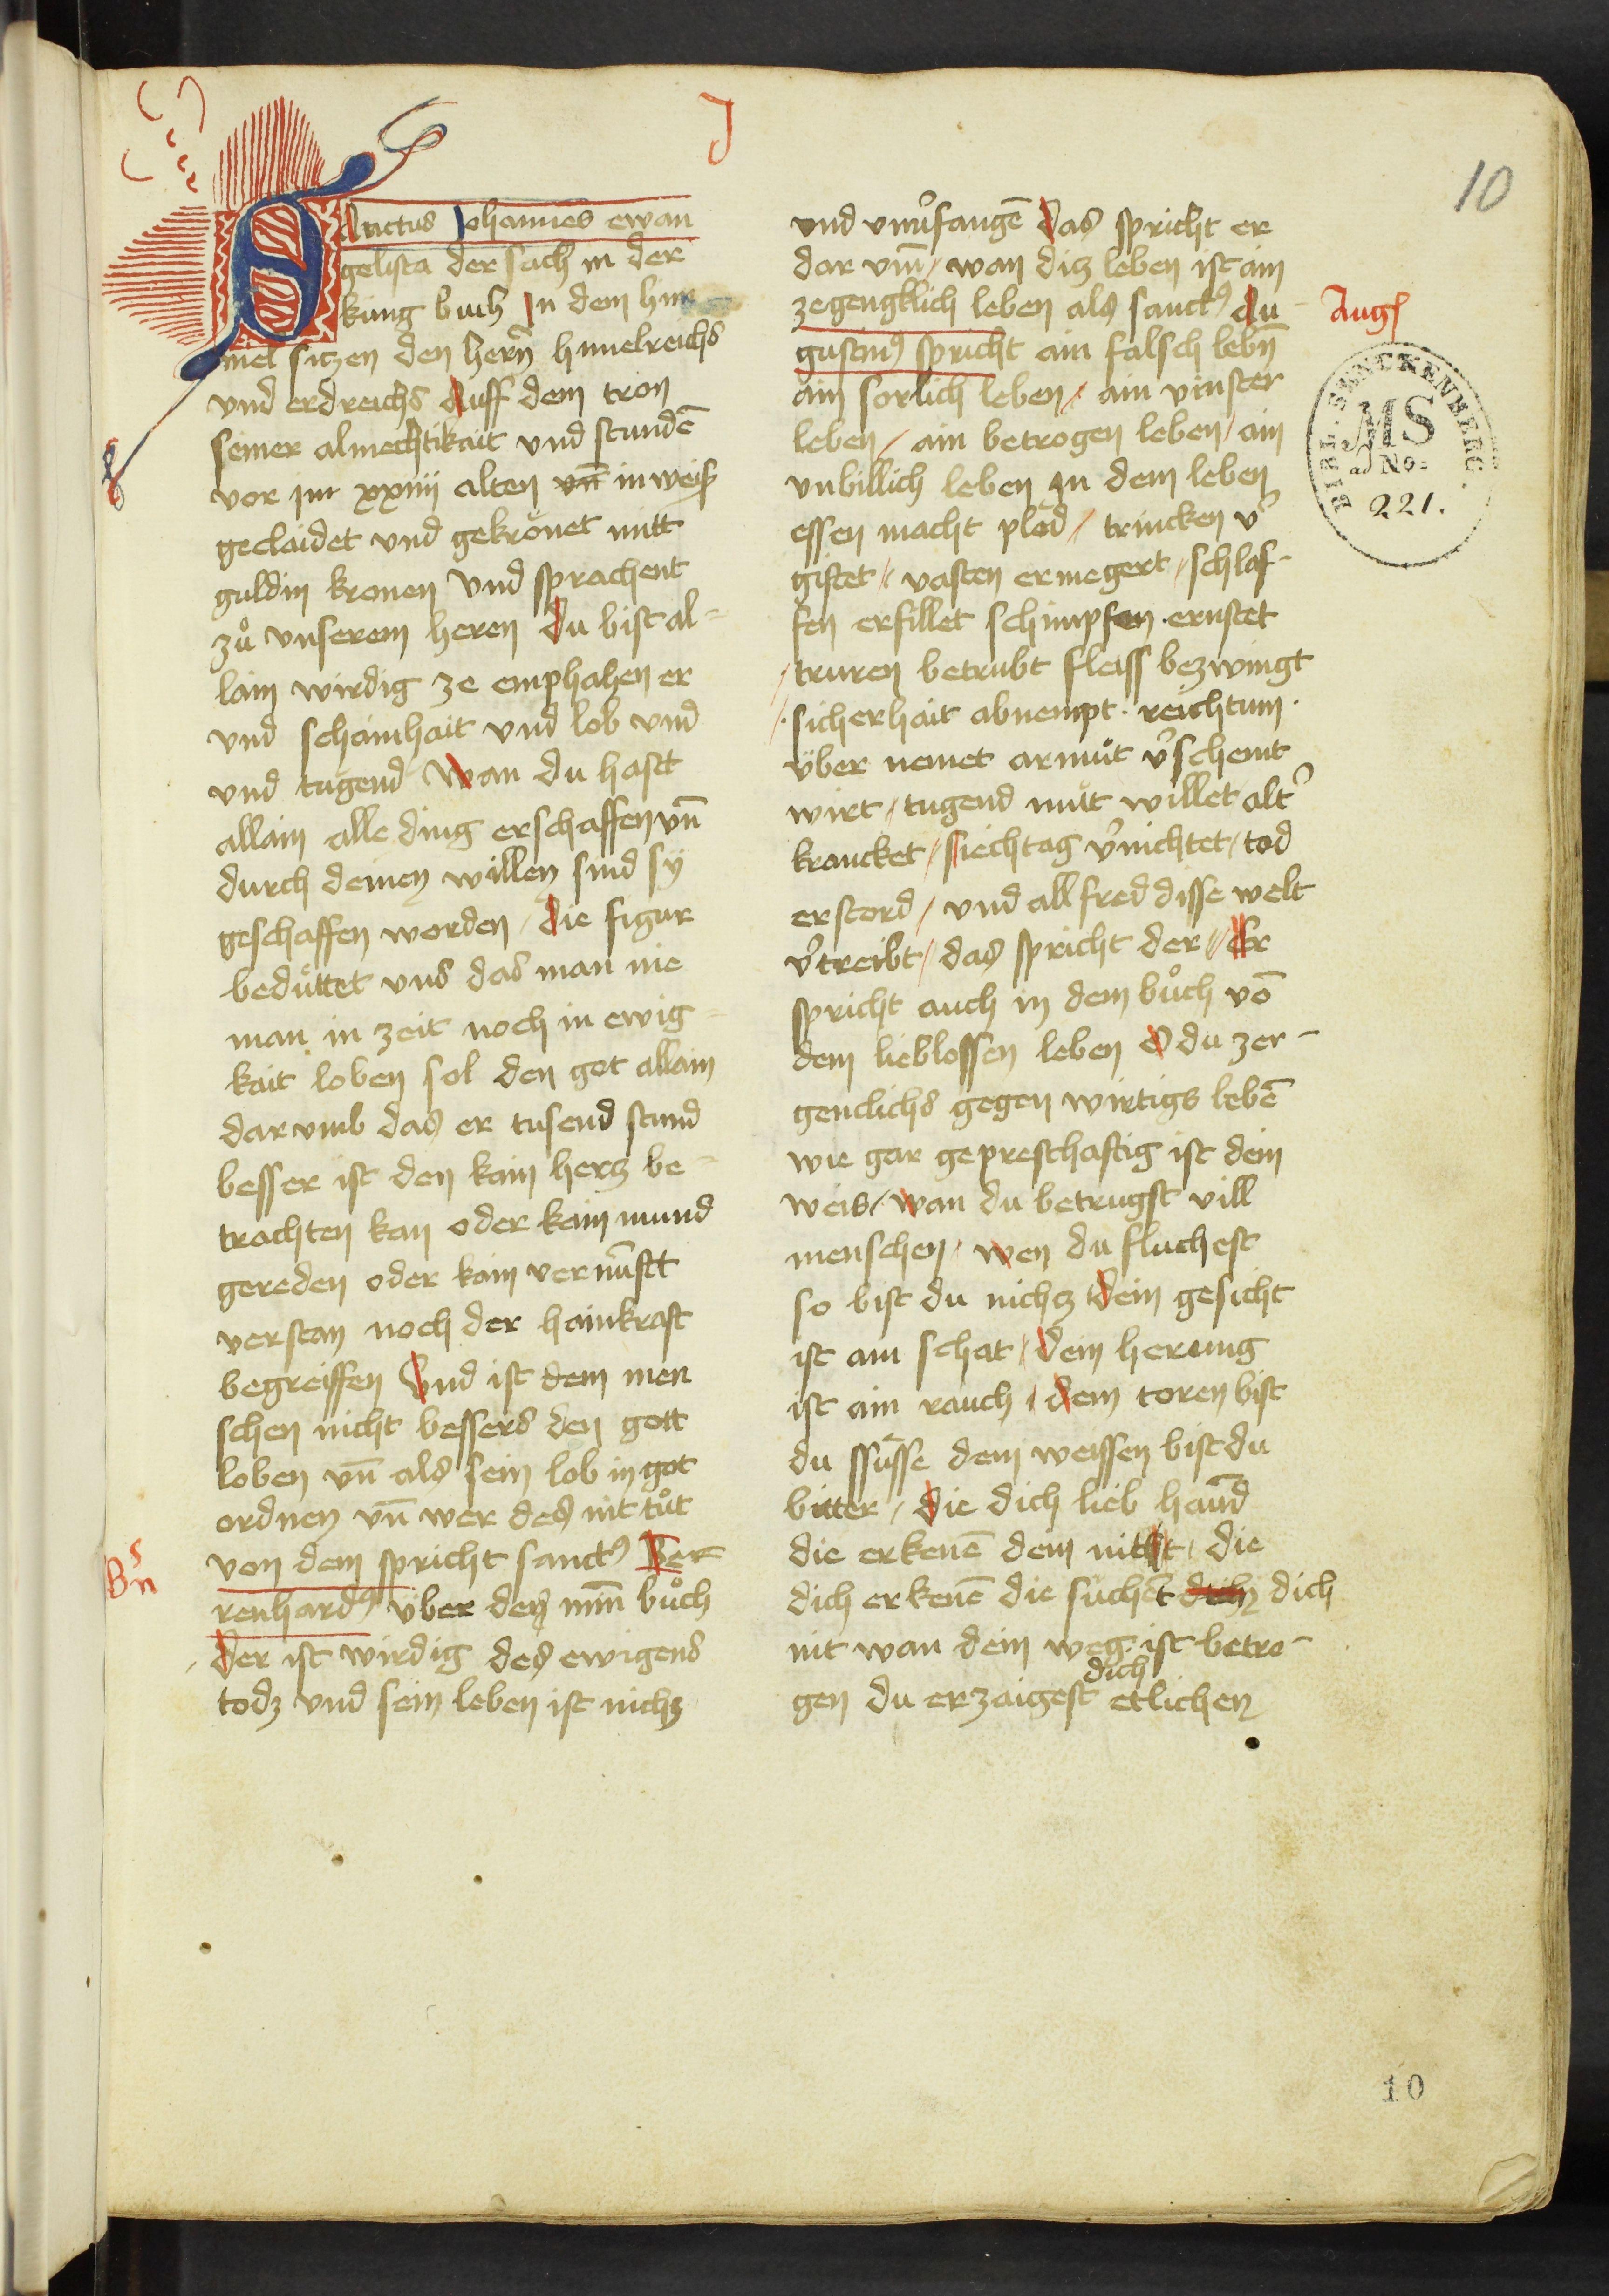 J
10
SAnctus Johannes ewan
gelista der sach in der
kung buch In dem him
mel sitzen den hern̄ himelreichs
vnd erdreichs Auff dem tron
seiner almechtikait vnd stundē
vor im xxiiij alten vn̄ in weiß
geclaidet vnd gekrönet mitt
guldin kronen Vnd sprachent
zů vnserem heren Du bist al-
lain wirdig ze emphahen er
vnd schainhait vnd lob vnd
vnd tugend Wan du hastt
allain alle ding erschaffen vn̄
durch deinen willen sind sÿ
geschaffen worden / Die figur
bedüttet vns das man nie
man in zeit noch in ewig-
kait loben sol den got allain
dar vmb das er tusend stund
besser ist den kain hertz be-
trachten kan oder kain mund
gereden oder kain vernunftt
verstan noch der hainkraft
begreiffen Vnd ist dem men
schen nicht bessers den gott
loben vn̄ als sein lob in got
ordnen vn̄ wer des nit tůt
von dem spricht sanctꝰ Ber
renhardꝰ über den buͦch
Der ist wirdig des ewigens
todz vnd sein leben ist nichz
Bsn
vnd vmūfangē Das spricht er
dar vm̄ / wan ditz leben ist ain
zegengklich leben als sanctꝰ Au-
gustinꝰ spricht ain falsch lebn̄
ain sorlich leben / ain vinster
leben / ain betrogen leben / ain
vnbillich leben In dem leben
essen macht plöd / trincken v̓
giftet / vasten ermegert / schlaf-
fen erfillet schimpfen · ernstet
/ truren betrubt fleiss bezwingt
/ · sicherhait abnempt · reichtum ·
über nemet armůt v̓schemt
wirt / tugend můt willet alt̓
krancket / siechtag v̓nichtet / tod
erstord / vnd all fred disse welt
v̓treibt / das spricht der / Er
spricht auch in dem bůch vō
dem lieblossen leben O du zer-
genclichs gegen wirtigs lebē
wie gar gepresthaftig ist dein
weis / wan du betrugst vill
menschen / wen du fluchest
so bist du nichz Dein gesicht
ist ain schat / Dein herung
ist ain rauch / Dem toren bist
du ssüsse dem weissen bist du
bitter / Die dich lieb haund
die erkenē dein nitt / die
dich erkenē die suchēt dich dich
nit wan dein weg ist betro-
gen du erzaigest dich etlichen
Augꝰ
BIBL. SENCKENBERG.
MS
No:
221.
10